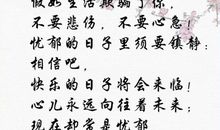 假如生活欺骗了你，
不要悲伤，不要心急！
忧郁的日子里须要镇静：
相信吧，
快乐的日子将会来临！
心儿永远向往着未来；
现在却常是忧郁